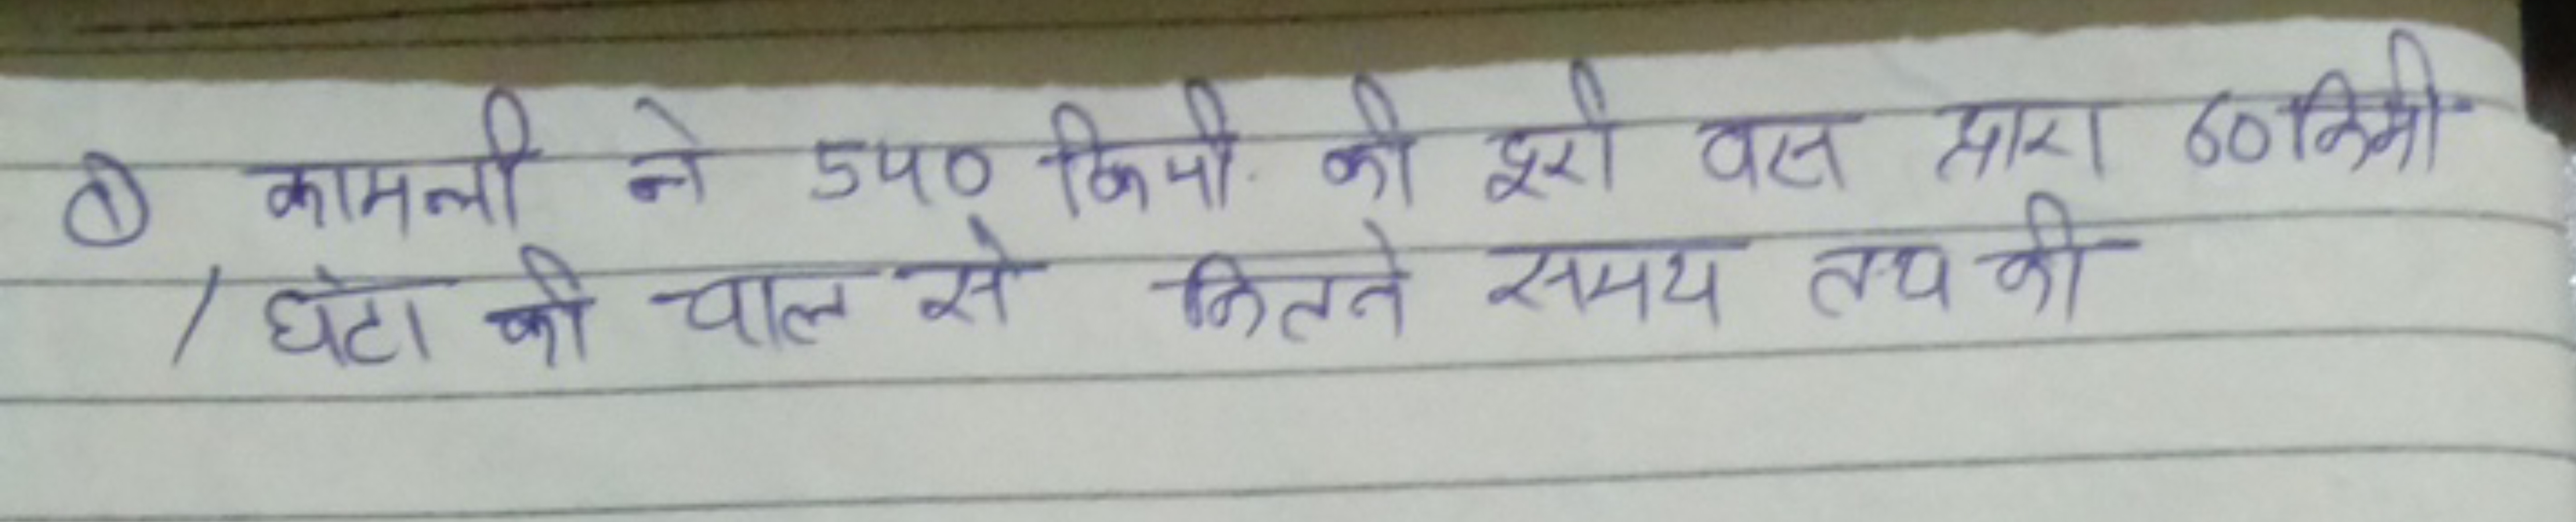 ① कामनी ने 540 किमी. की दूरी वस द्वारा 60 किमी
/ घंटा की चाल से कितने समय तय की